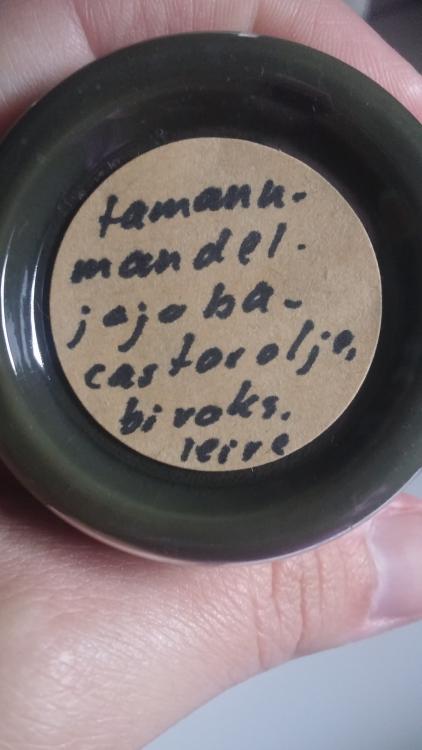 tamanu-
mandel-
jojoba-
castorolje,
bivoks.
leire